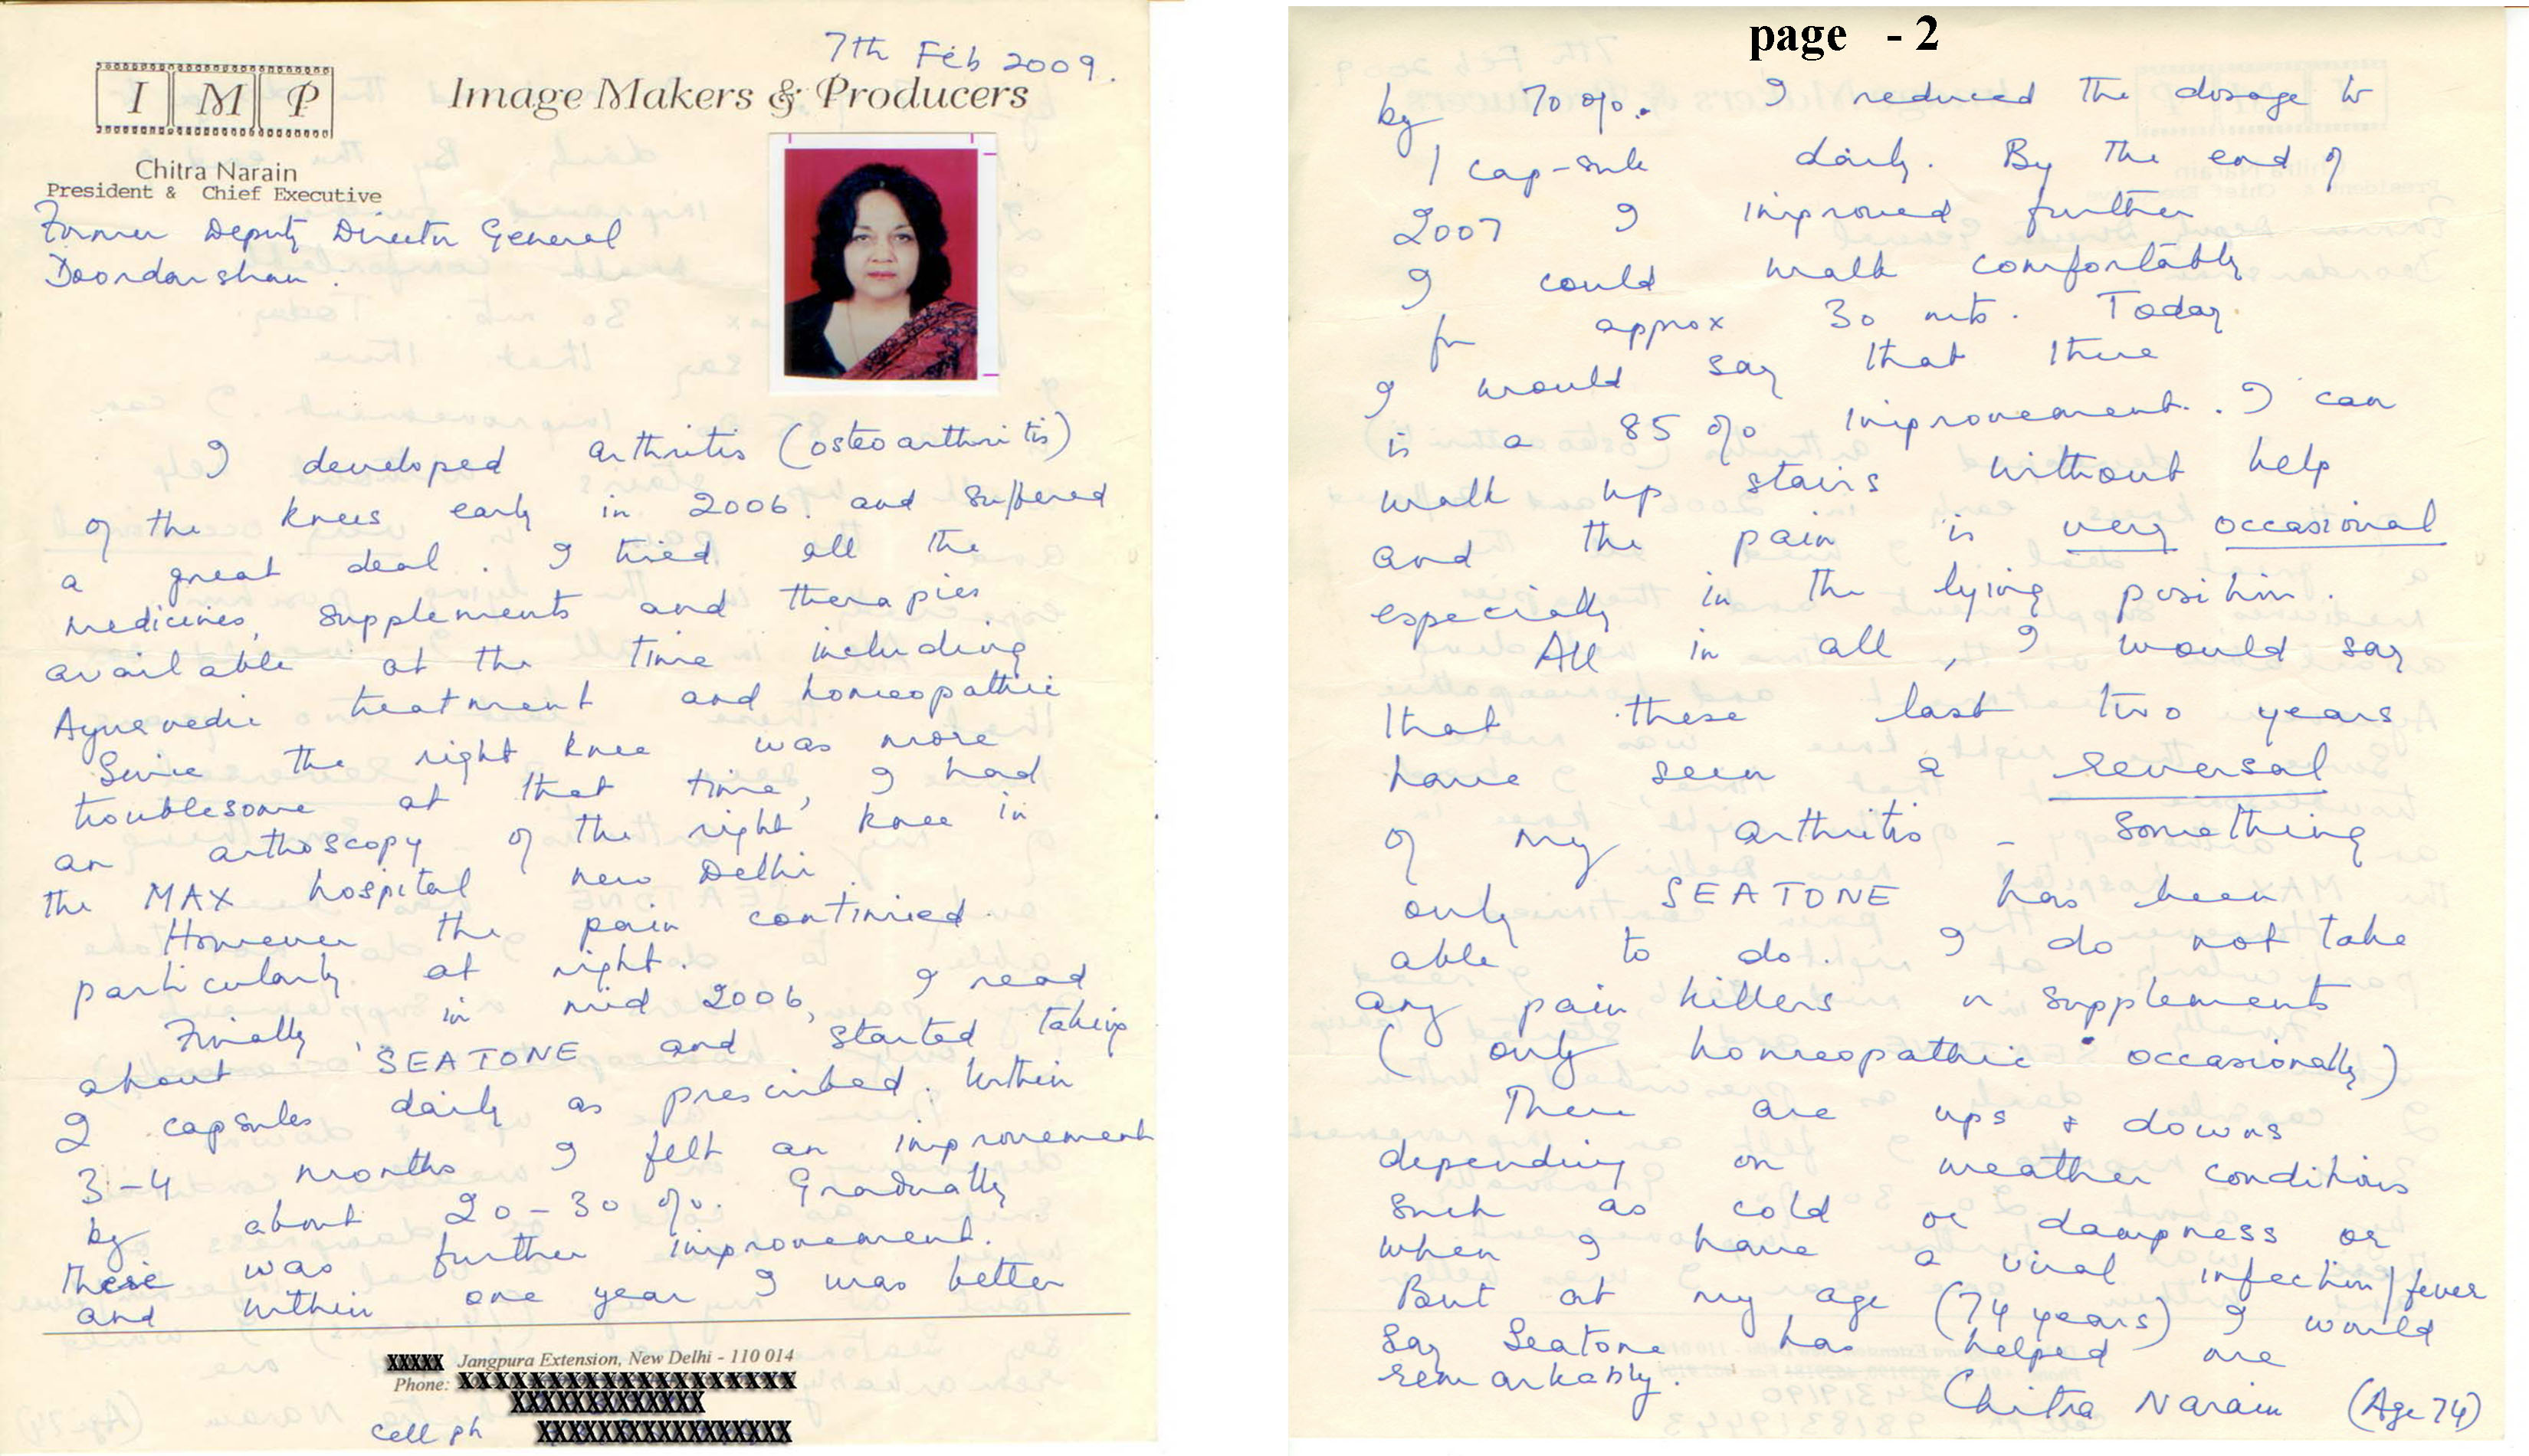 7th Feb 2009.
I M P
Image Makers & Producers
Chitra Narain
President & Chief Executive
Former Deputy Director General
Doordarshan.
I developed arthritis (osteoarthritis)
of the knees early in 2006. and suffered
a great deal. I tried all the
medicines, supplements and therapies
available at the time including
Ayurvedic treatment and homeopathic
Since the right knee was more
troublesome at that time, I had
an arthoscopy of the right knee in
the MAX hospital new Delhi
However the pain continued.
particularly at night.
Finally, in mid 2006, I read
about 'SEATONE and started taking
2 capsules daily as prescribed. Within
3-4 months I felt an improvement
by about 20-30 %. Gradually
there was further improvement.
and within one year I was better
XXXXX Jangpura Extension, New Delhi - 110 014
Phone: XXXXXXXXXXXXXXXXXXXX
XXXXXXXXXXXX
cell ph XXXXXXXXXXXXXXXX
page - 2
by 70 %. I reduced the dosage to
1 cap-sule daily. By the end of
2007 I improved further
I could walk comfortably
for approx 30 mts. Today
I would say that there
is a 85 % improvement. I can
walk up stairs without help
and the pain is very occasional
especially in the lying position.
All in all, I would say
that these last two years
have seen a reversal
of my arthritis - something
only SEATONE has been
able to do. I do not take
any pain killers or supplements
(only homeopathic occasionally)
There are ups & downs
depending on weather conditions
such as cold or dampness or
when I have a viral infection/fever
But at my age (74 years) I would
say Seatone has helped me
remarkably.
Chitra Narain (Age 74)